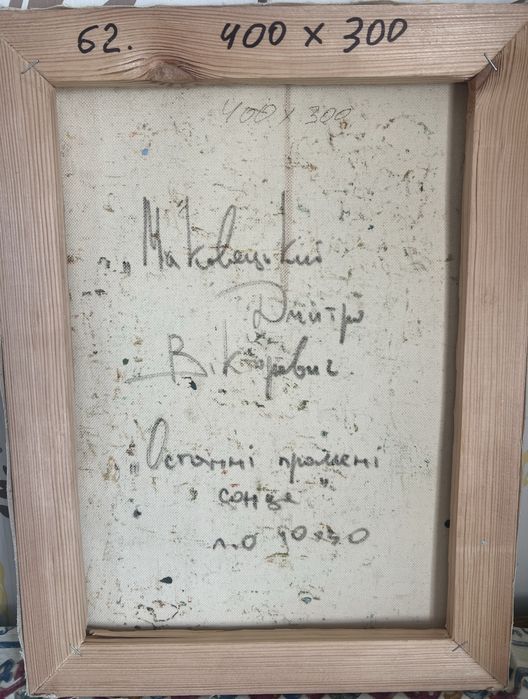 62. 400 х 300
400 х 300
„Маковецький
Дмитро
Вікторович
„Останні промені
сонця"
п.о 40х30